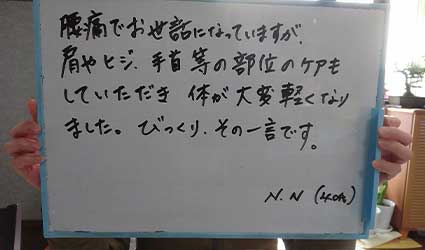 腰痛でお世話になっていますが、
肩やヒジ、手首等の部位のケアも
していただき 体が大変軽くなり
ました。びっくり、その一言です。
N.N (40代)